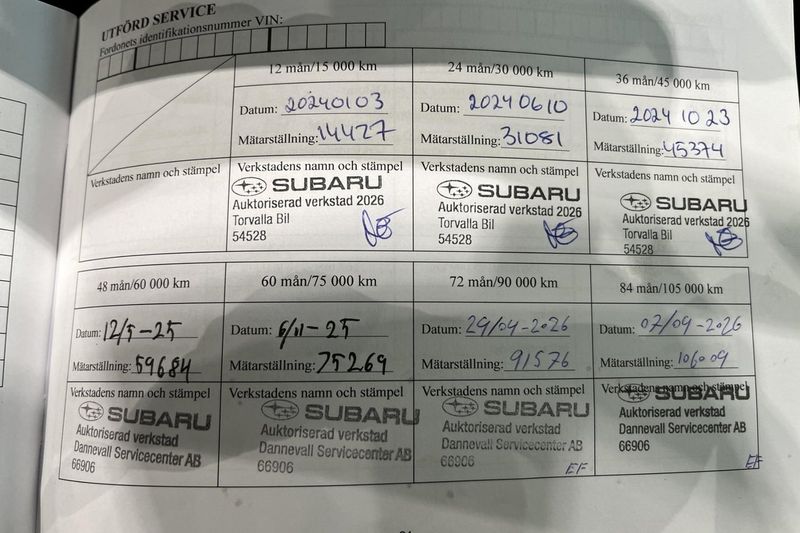 UTFÖRD SERVICE
Fordonets identifikationsnummer VIN:
12 mån/15 000 km
Datum: 20240103
Mätarställning: 14427
Verkstadens namn och stämpel
SUBARU
Auktoriserad verkstad 2026
Torvalla Bil
54528
24 mån/30 000 km
Datum: 20240610
Mätarställning: 31081
Verkstadens namn och stämpel
SUBARU
Auktoriserad verkstad 2026
Torvalla Bil
54528
36 mån/45 000 km
Datum: 2024 10 23
Mätarställning: 45374
Verkstadens namn och stämpel
SUBARU
Auktoriserad verkstad 2026
Torvalla Bil
54528
Verkstadens namn och stämpel
48 mån/60 000 km
Datum: 12/5-25
Mätarställning: 59684
Verkstadens namn och stämpel
SUBARU
Auktoriserad verkstad
Dannevall Servicecenter AB
66906
60 mån/75 000 km
Datum: 6/11-25
Mätarställning: 75269
Verkstadens namn och stämpel
SUBARU
Auktoriserad verkstad
Dannevall Servicecenter AB
66906
72 mån/90 000 km
Datum: 29/04-2026
Mätarställning: 91576
Verkstadens namn och stämpel
SUBARU
Auktoriserad verkstad
Dannevall Servicecenter AB
66906
EF
84 mån/105 000 km
Datum: 07/09-2026
Mätarställning: 106009
Verkstadens namn och stämpel
SUBARU
Auktoriserad verkstad
Dannevall Servicecenter AB
66906
EF